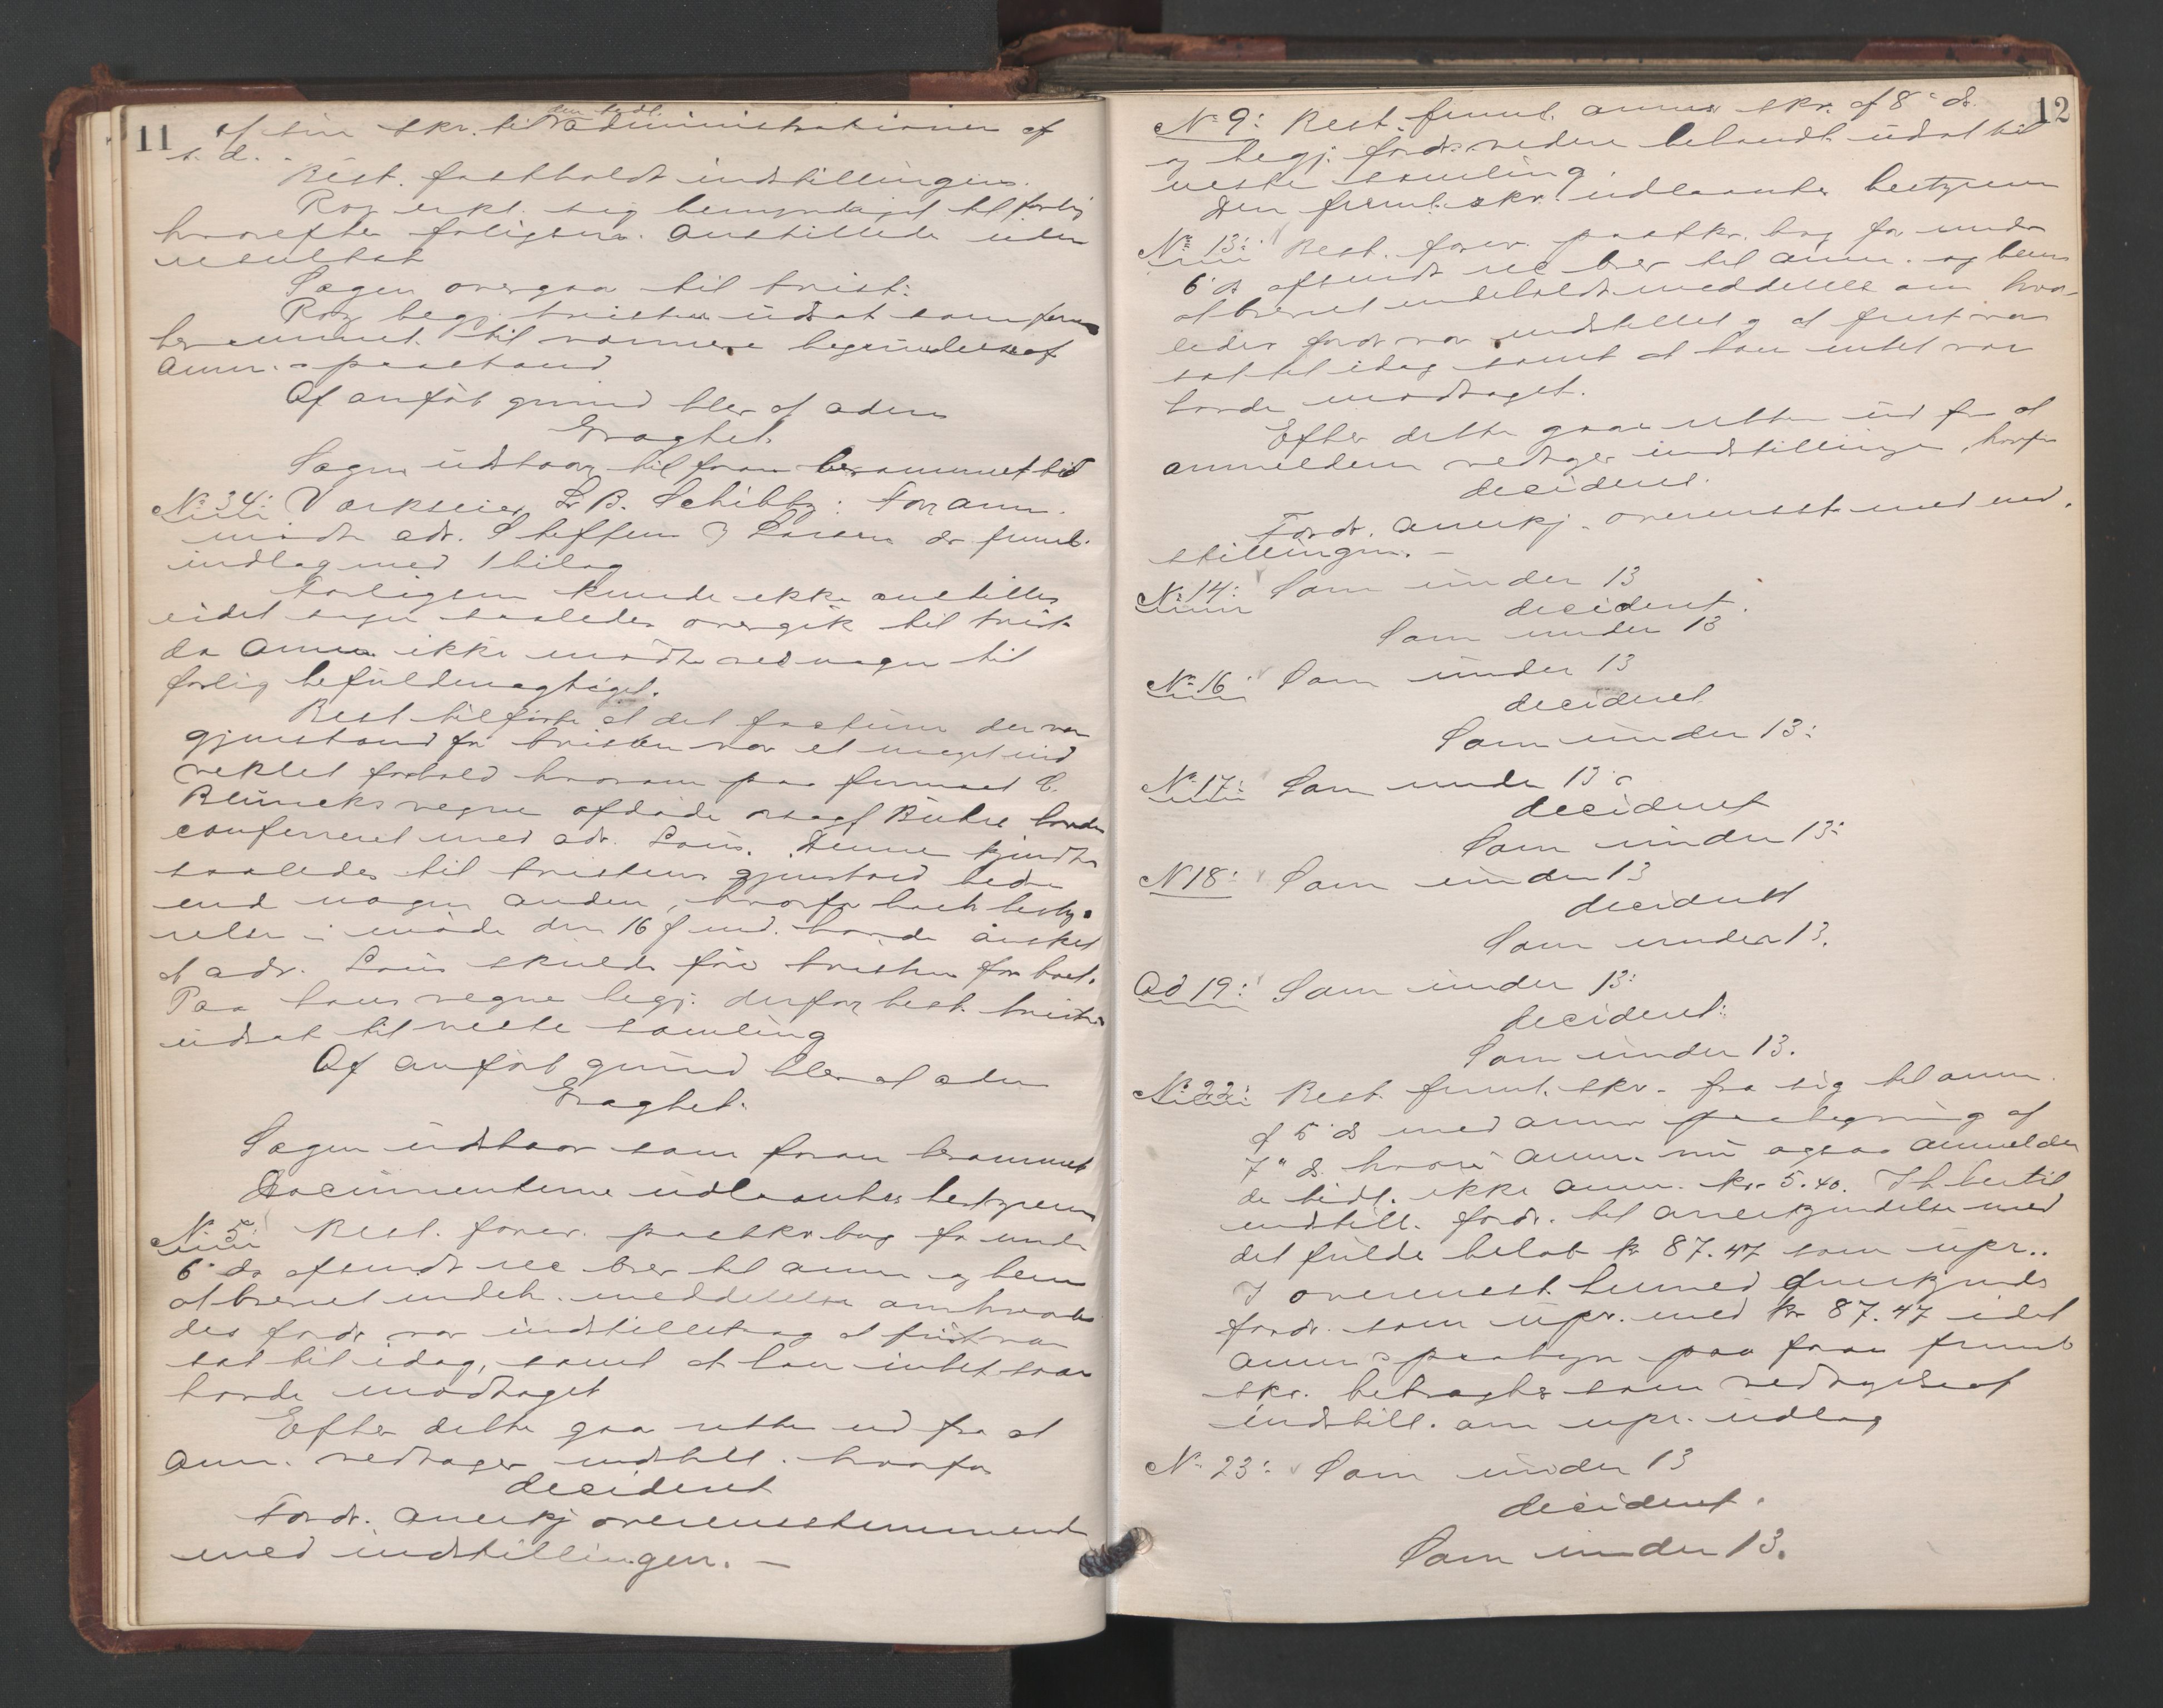 11
den tidl.
af sin skr. til administrationen af
s. d. -
Best. fastholdt indstillingen.
Roy erkl. sig bemyndiget til forlig
hvorefter forligspr. anstilledes uden
resultat
Sagen overgaar til tvist:
Roy begj. tvisten udsat som foran
berammet til nærmere begrundelse af
Ann.s paastand
Af anført grund blev af adm
Eragtet.
Sagen udstaar til foran berammet tid
No 34: Værkseier L. B. Schibby: For ann.
mødte adv. Steffens J Larsen der freml.
indlæg med 1 bilag
Forligspr. kunde ikke anstilles
idet sagen saaledes overgik til tvist
da Ann. ikke mødte ved nogen til
forlig befuldmægtiget.
Best tilførte at det factum der var
gjenstand for tvisten var et meget ind
viklet forhold hvorom paa firmaet C.
Bluncks vegne afdøde Buhre havde
confereret med adv. Louis. Denne kjendte
saaledes til tvistens gjenstand bedre
end nogen anden, hvorfor boets besty-
relse i møde den 16 f. md. havde ønsket
at adv. Louis skulde føre tvisten for boet.
Paa hans vegne begj. derfor best. tvisten
udsat til næste samling
Af anført grund blev af adm
Eragtet.
Sagen udstaar som foran berammet
Documenterne udlaantes bestyreren
No 5: Best. forev. postkv.bog for under
6' ds afsendt rec brev til ann og bem
at brevet indeh. meddelelse om hvorle-
des fordr. var indstillet og at frist var
sat til idag, samt at han intet svar
havde modtaget
Efter dette gaar retten ud fra at
Ann. vedtager indstill. hvorfor
decideret
Fordr. anerkj overensstemmende
med indstillingen. -
12
No 9: Best. freml. anms skr. af 8' ds.
og begj. fordr. videre behandl. udsat til
næste samling.
Den freml. skr. udlaantes bestyreren
No 13: Best. forev. postkv. bog for under
6' ds afsendt rec brev til ann. og bem
at brevet indeholdt meddelelse om hvor-
ledes fordr var indstillet og at frist var
sat til idag samt at han intet svar
havde modtaget.
Efter dette gaar retten ud fra at
anmelderen vedtager indstillingen, hvorfor
decideret.
Fordr. anerkj. overensst. med ind-
stillingen. -
No 14: Som under 13
decideret.
Som under 13
No 16 Som under 13
decideret
Som under 13:
No 17: Som under 13:
decideret
Som under 13:
N 18: Som under 13
decideret
Som under 13.
Ad 19: Som under 13:
decideret:
Som under 13.
No 22: Best. freml. skr. fra sig til ann.
af 5' ds med anms paategning af
7" ds. hvori ann. nu ogsaa anmelder
de tidl. ikke anm. kr. 5.40. Ih. hertil
indstill. fordr. til anerkjendelse med
det fulde beløb kr 87.47 som upr..
I overensst. hermed anerkjendes
fordr. som upr. med kr 87.47 idet
anms paategn paa foran freml
skr. betragtes som vedtagelse af
indstill. om upr. udlæg
No 23: Som under 13
decideret.
Som under 13.